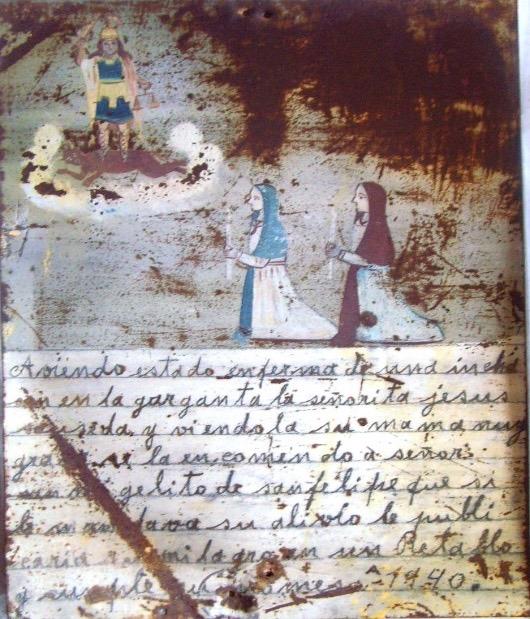 Aviendo estado enferma de una incha
on en la garganta la señorita jesus
y viendo la su mama muy
grave se la encomendo a señor
gelito de sanfelipe que si
le mandava su alivio le publi
caria milagro en un Retablo
y cumple su promesa A 1940.